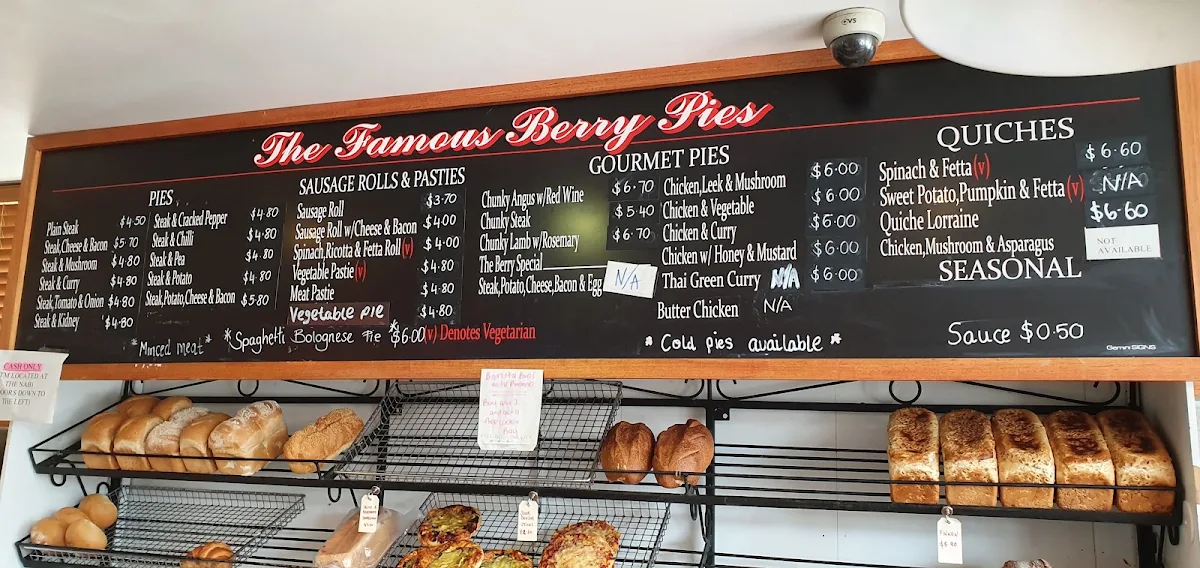 EVS
The Famous Berry Pies
PIES
Plain Steak $4.50
Steak,Cheese & Bacon $5.70
Steak & Mushroom $4.80
Steak & Curry $4.80
Steak,Tomato & Onion $4.80
Steak & Kidney $4.80
Steak & Cracked Pepper $4.80
Steak & Chilli $4.80
Steak & Pea $4.80
Steak & Potato $4.80
Steak,Potato,Cheese & Bacon $5.80
*Minced meat*
SAUSAGE ROLLS & PASTIES
Sausage Roll $3.70
Sausage Roll w/Cheese & Bacon $4.00
Spinach,Ricotta & Fetta Roll (v) $4.00
Vegetable Pastie (v) $4.80
Meat Pastie $4.80
Vegetable pie $4.80
*Spaghetti Bolognese Pie* $6.00
(v) Denotes Vegetarian
GOURMET PIES
Chunky Angus w/Red Wine $6.70
Chunky Steak $5.40
Chunky Lamb w/Rosemary $6.70
The Berry Special
Steak,Potato,Cheese,Bacon & Egg N/A
Chicken,Leek & Mushroom $6.00
Chicken & Vegetable $6.00
Chicken & Curry $6.00
Chicken w/ Honey & Mustard $6.00
Thai Green Curry N/A $6.00
Butter Chicken N/A
* Cold pies available *
QUICHES
Spinach & Fetta (v) $6.60
Sweet Potato,Pumpkin & Fetta (v) N/A
Quiche Lorraine $6.60
Chicken,Mushroom & Asparagus NOT AVAILABLE
SEASONAL
Sauce $0.50
Gemini SIGNS
CASH ONLY
LOCATED AT
THE NAB!
DOORS DOWN TO
THE LEFT)